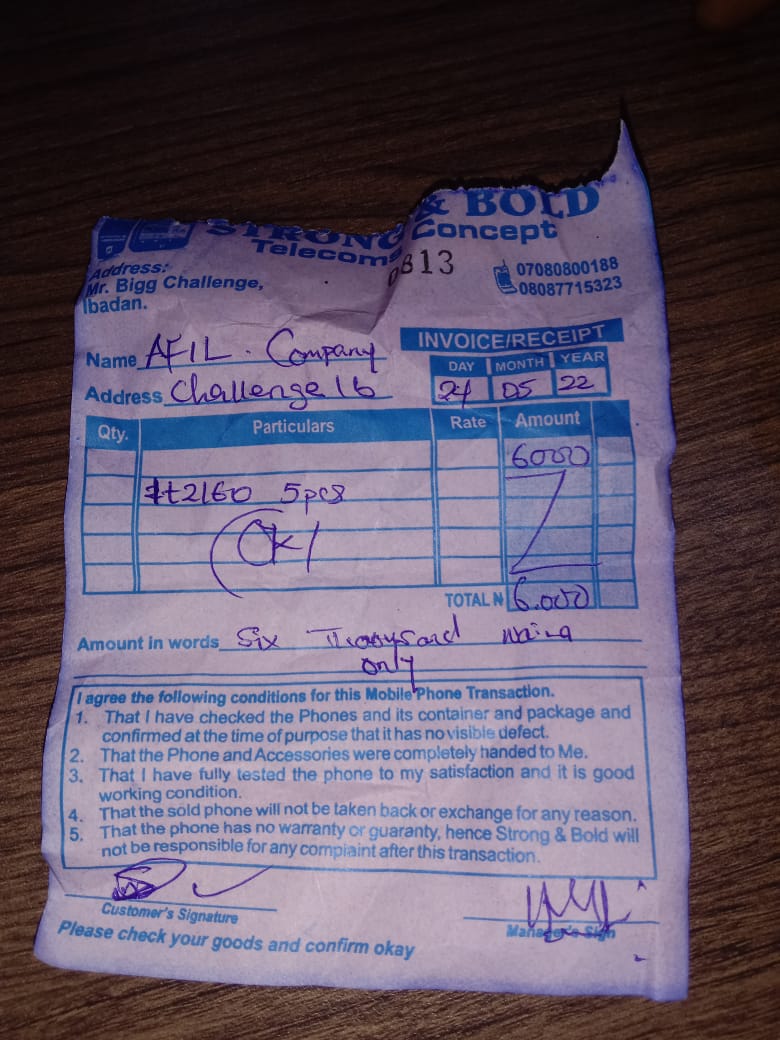 STRONG & BOLD
Telecoms Concept
0813
Address:
Mr. Bigg Challenge,
Ibadan.
07080800188
08087715323
INVOICE/RECEIPT
Name AFIL. Company
DAY MONTH YEAR
24 05 22
Address Challenge Ib
Qty. Particulars Rate Amount
6000
tt2160 5pcs
Ok
TOTAL ₦ 6.000
Amount in words Six Thousand naira
only
I agree the following conditions for this Mobile Phone Transaction.
1. That I have checked the Phones and its container and package and
confirmed at the time of purpose that it has no visible defect.
2. That the Phone and Accessories were completely handed to Me.
3. That I have fully tested the phone to my satisfaction and it is good
working condition.
4. That the sold phone will not be taken back or exchange for any reason.
5. That the phone has no warranty or guaranty, hence Strong & Bold will
not be responsible for any complaint after this transaction.
Customer's Signature
Manager's Sign
Please check your goods and confirm okay